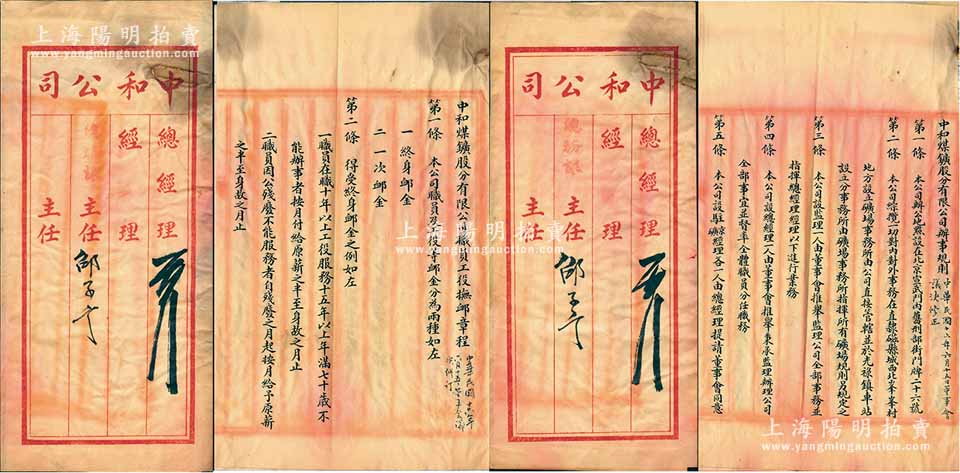 上海陽明拍賣
www.yangmingauction.com
中和公司
總經理
經理
主任
主任
中和煤鑛股分有限公司職員工役撫卹章程
第一條 本公司職員另役等卹金分為兩種如左
一 終身卹金
二 一次卹金
第二條 得受終身卹金之例如左
一職員在職十年以上工役服務十五年以上年滿七十歲不
能辦事者按月付給原薪之半至身故之月止
二職員因公殘廢不能服務者自殘廢之月起按月給予原薪
之半至身故之月止
上海陽明拍賣
www.yangmingauction.com
中和公司
總經理
經理
主任
主任
中和煤鑛股分有限公司辦事規則
中華民國十六年六月十五日董事會
議決修正
第一條 本公司辦公地點設在北京宣武門內舊刑部街門牌二十六號
第二條 本公司綜攬一切對內對外事務在直隸磁縣城西北峯峯村
地方設立礦場事務所由公司直接管轄並於光祿鎮車站
設立分事務所由礦場事務所指揮所有礦場規則另規定之
第三條 本公司設監理一人由董事會推舉監理公司全部事務並
指揮總經理經理以下進行業務
第四條 本公司設總經理一人由董事會推舉秉承監理辦理公司
全部事宜並督率全體職員分任職務
第五條 本公司設駐京鑛經理各一人由總經理提請董事會同意
上海陽明拍賣
www.yangmingauction.com